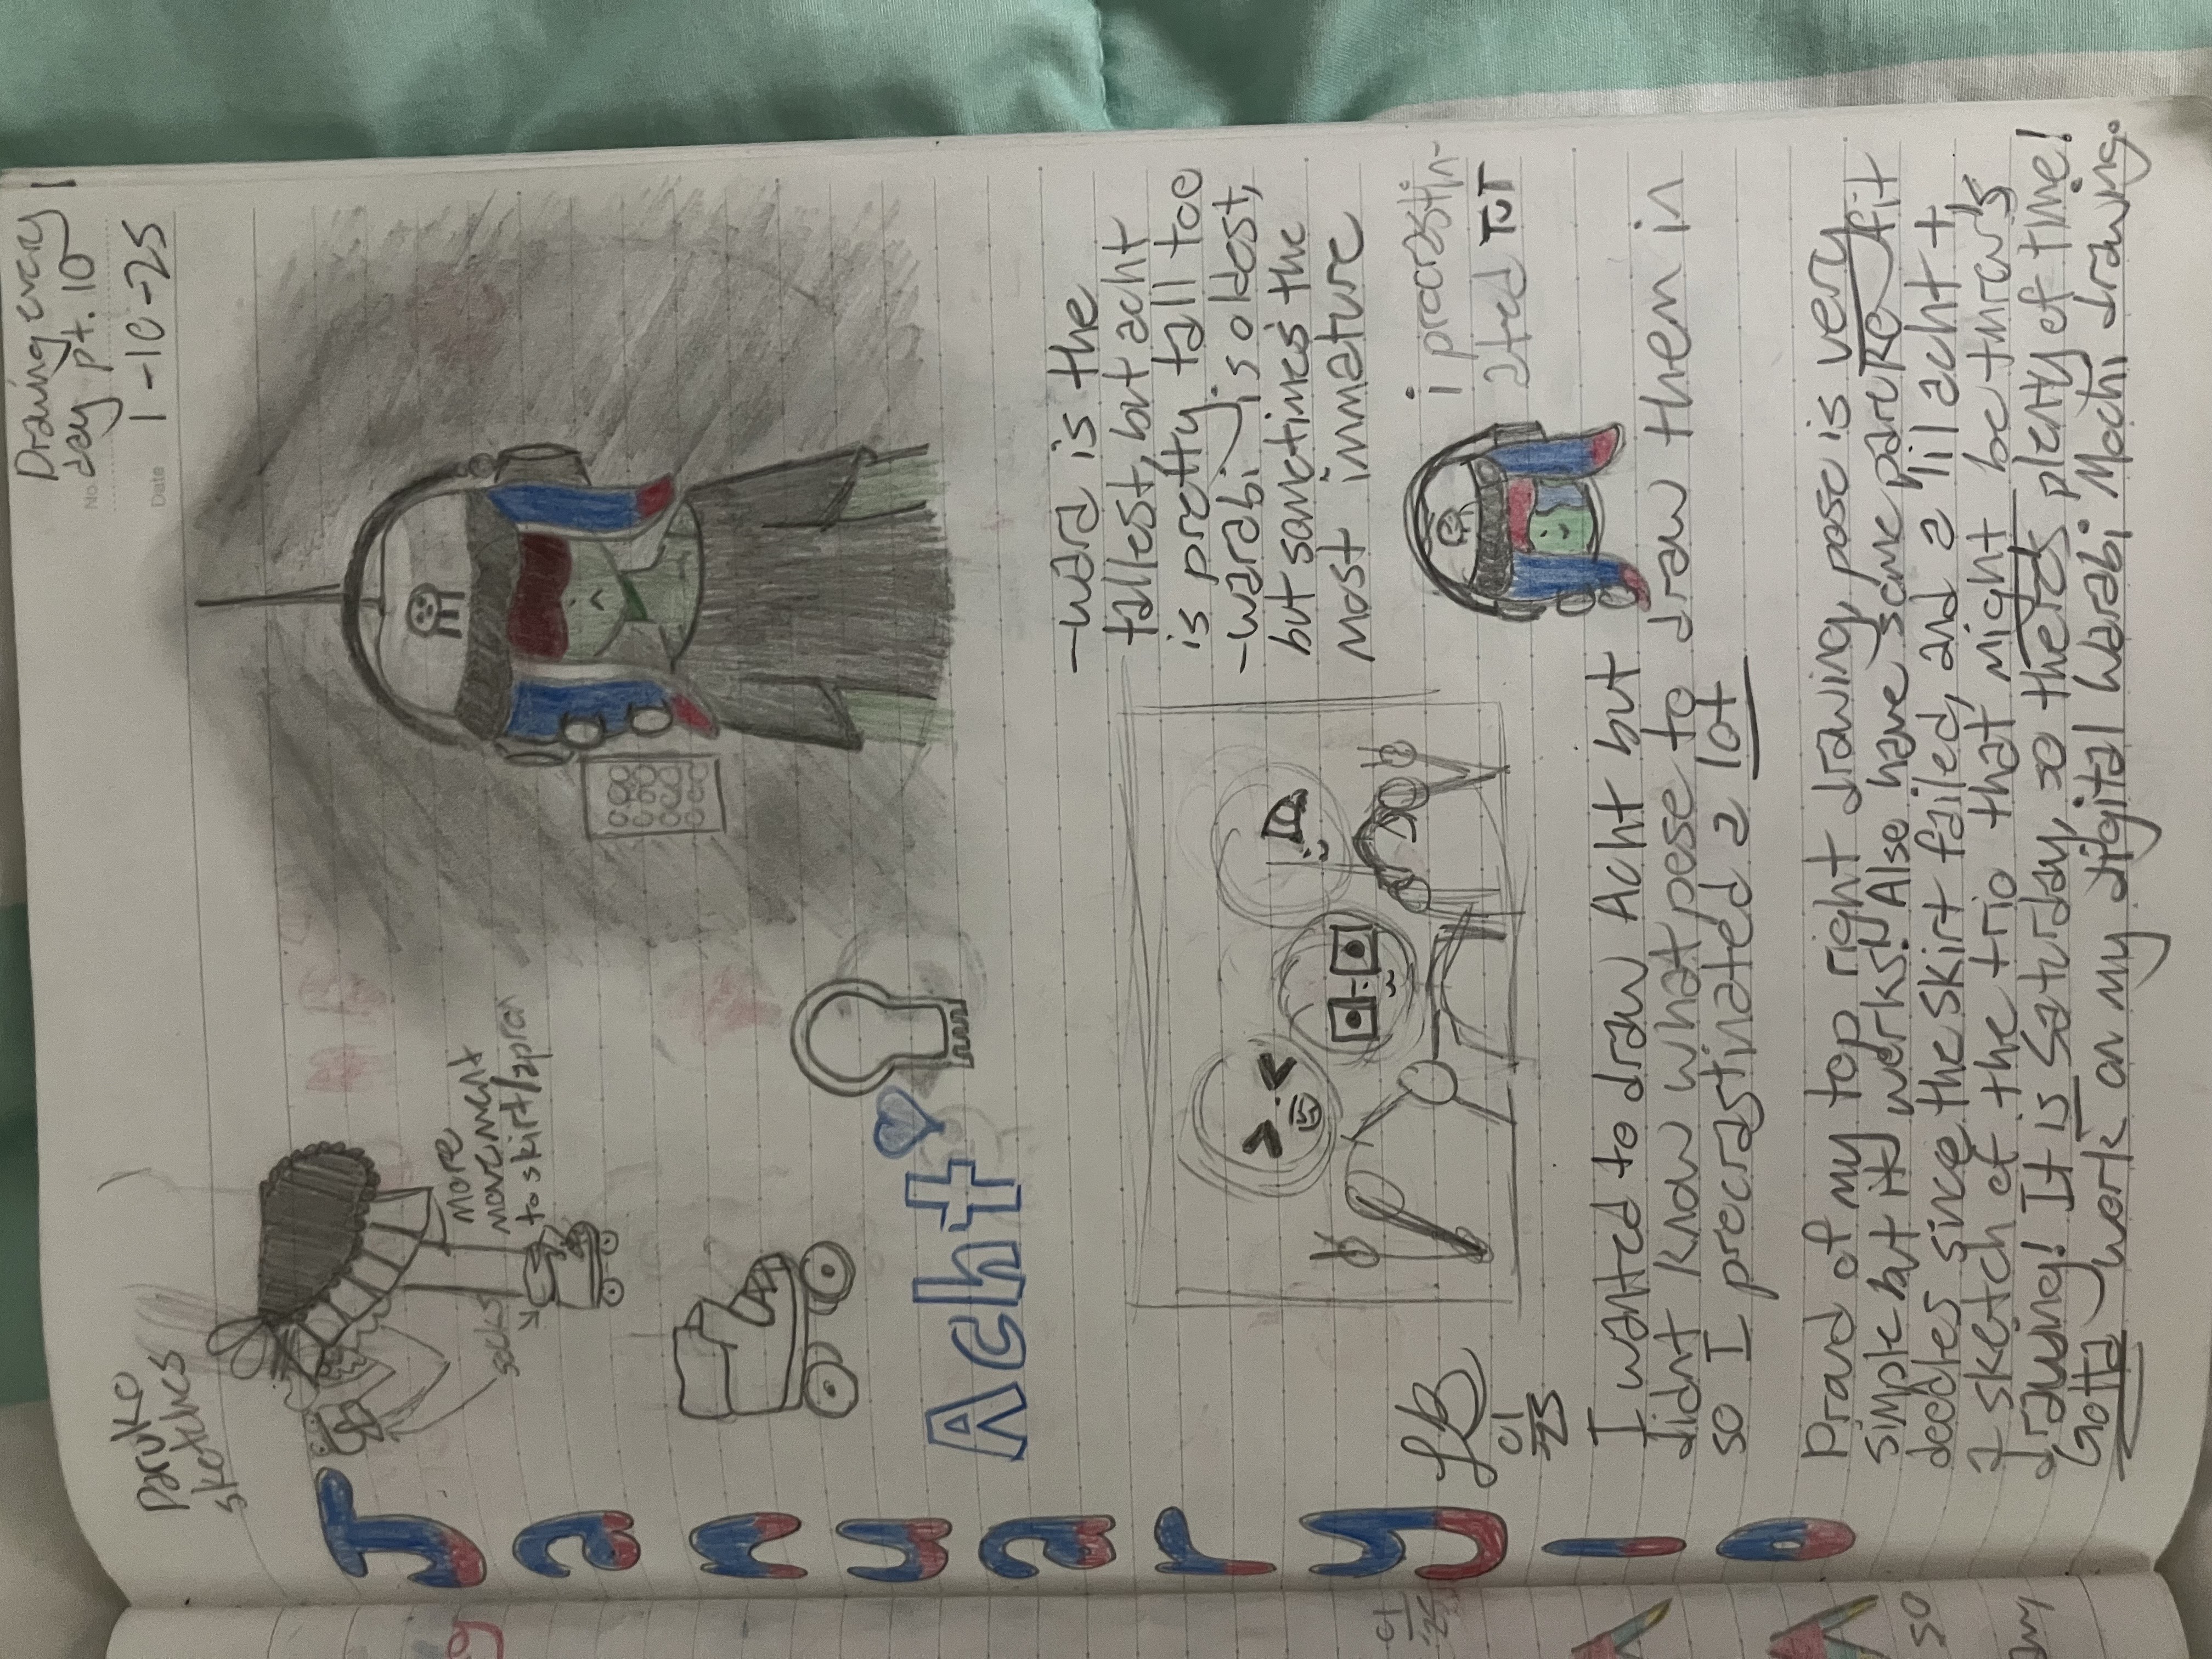 Drawing every
day pt. 10
No.
Date 1-10-25
Paruko
sketches
January 10
socks
more
movement
to skirt/apron
Acht
-wara is the
tallest, but acht
is pretty tall too
-warabi is oldest,
but sometimes the
most immature
i procrastin-
ated TuT
LB
01
25
I wanted to draw Acht but
didnt know what pose to draw them in
so I procrastinated a lot
Proud of my top right drawing, pose is very
simple but it works! Also have some paruko fit
doodles since the skirt failed, and a lil acht +
a sketch of the trio that might be tmrw's
drawing! It is Saturday, so there's plenty of time!
Gotta work on my digital Warabi Mochi drawing.
01
'25
so